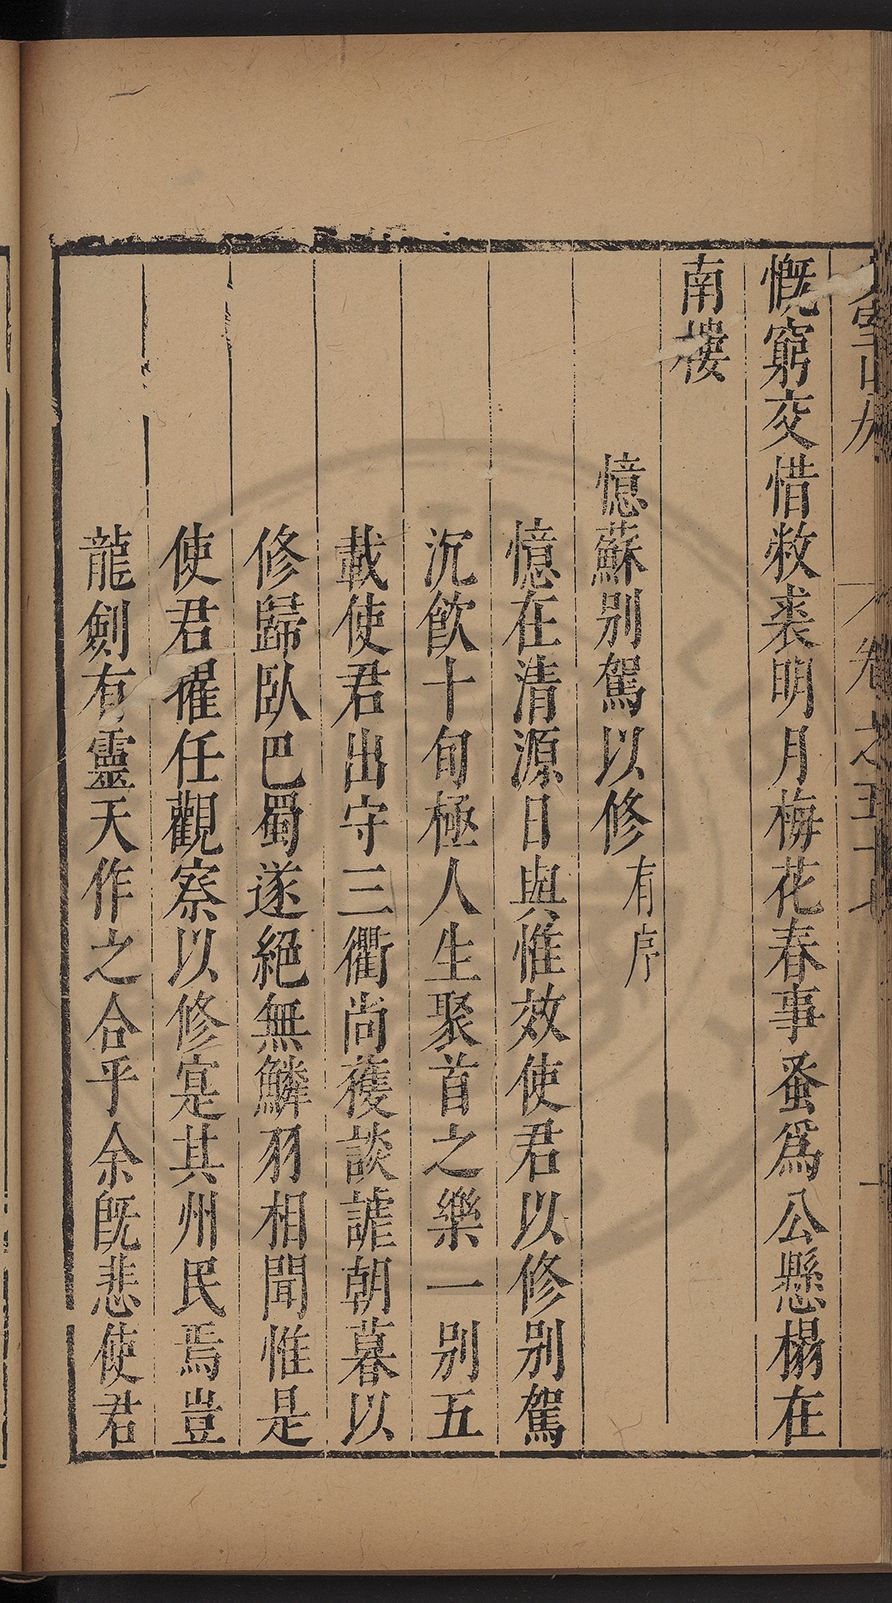 卷之五十九
慨窮交惜敝裘明月梅花春事蚤爲公懸榻在
南樓
憶蘇別駕以修有序
憶在清源日與惟效使君以修別駕
沉飲十旬極人生聚首之樂一別五
載使君出守三衢尚獲談謔朝暮以
修歸臥巴蜀遂絕無鱗羽相聞惟是
使君擢任觀察以修寔其州民焉豈
龍劍有靈天作之合乎余既悲使君